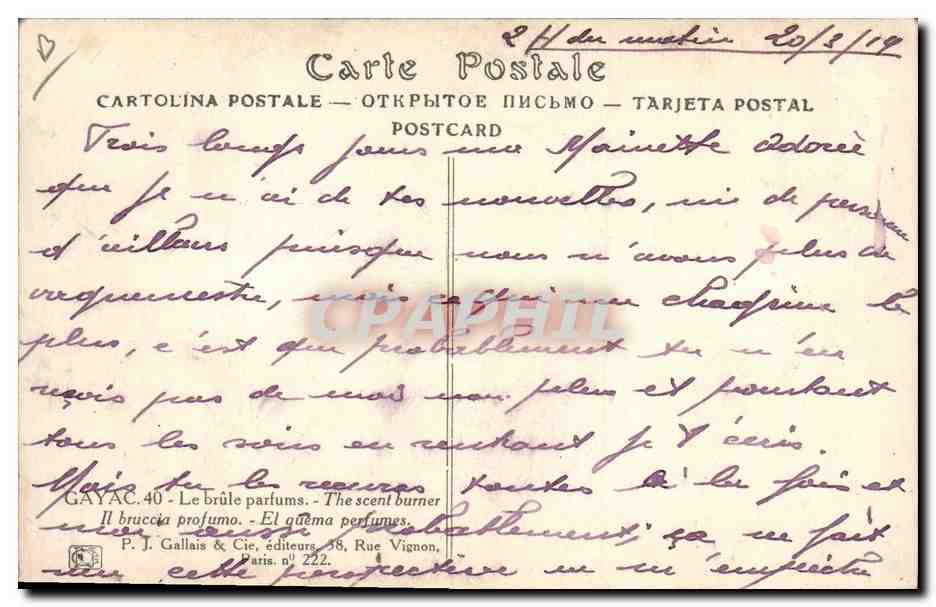 2 H du matin 20/3/19
Carte Postale
CARTOLINA POSTALE — ОТКРЫТОЕ ПИСЬМО — TARJETA POSTAL
POSTCARD
Trois longs jours ma Mainette adorée
que je n'ai de tes nouvelles, ni de personne
d'ailleurs puisque nous n'avons plus de
vaguemestre, mais ce qui me chagrine le
plus, c'est que probablement tu n'en
reçois pas de moi non plus et pourtant
tous les soirs en rentrant je t'écris.
Mais tu les recevras toutes à la fois et
moi aussi probablement, ça ne fait
rien cette perspective en m'empêche
GAYAC. 40 - Le brûle parfums. - The scent burner
Il bruccia profumo. - El quema perfumes.
P. J. Gallais & Cie, éditeurs, 38, Rue Vignon,
Paris. nº 222.
CPAPHIL